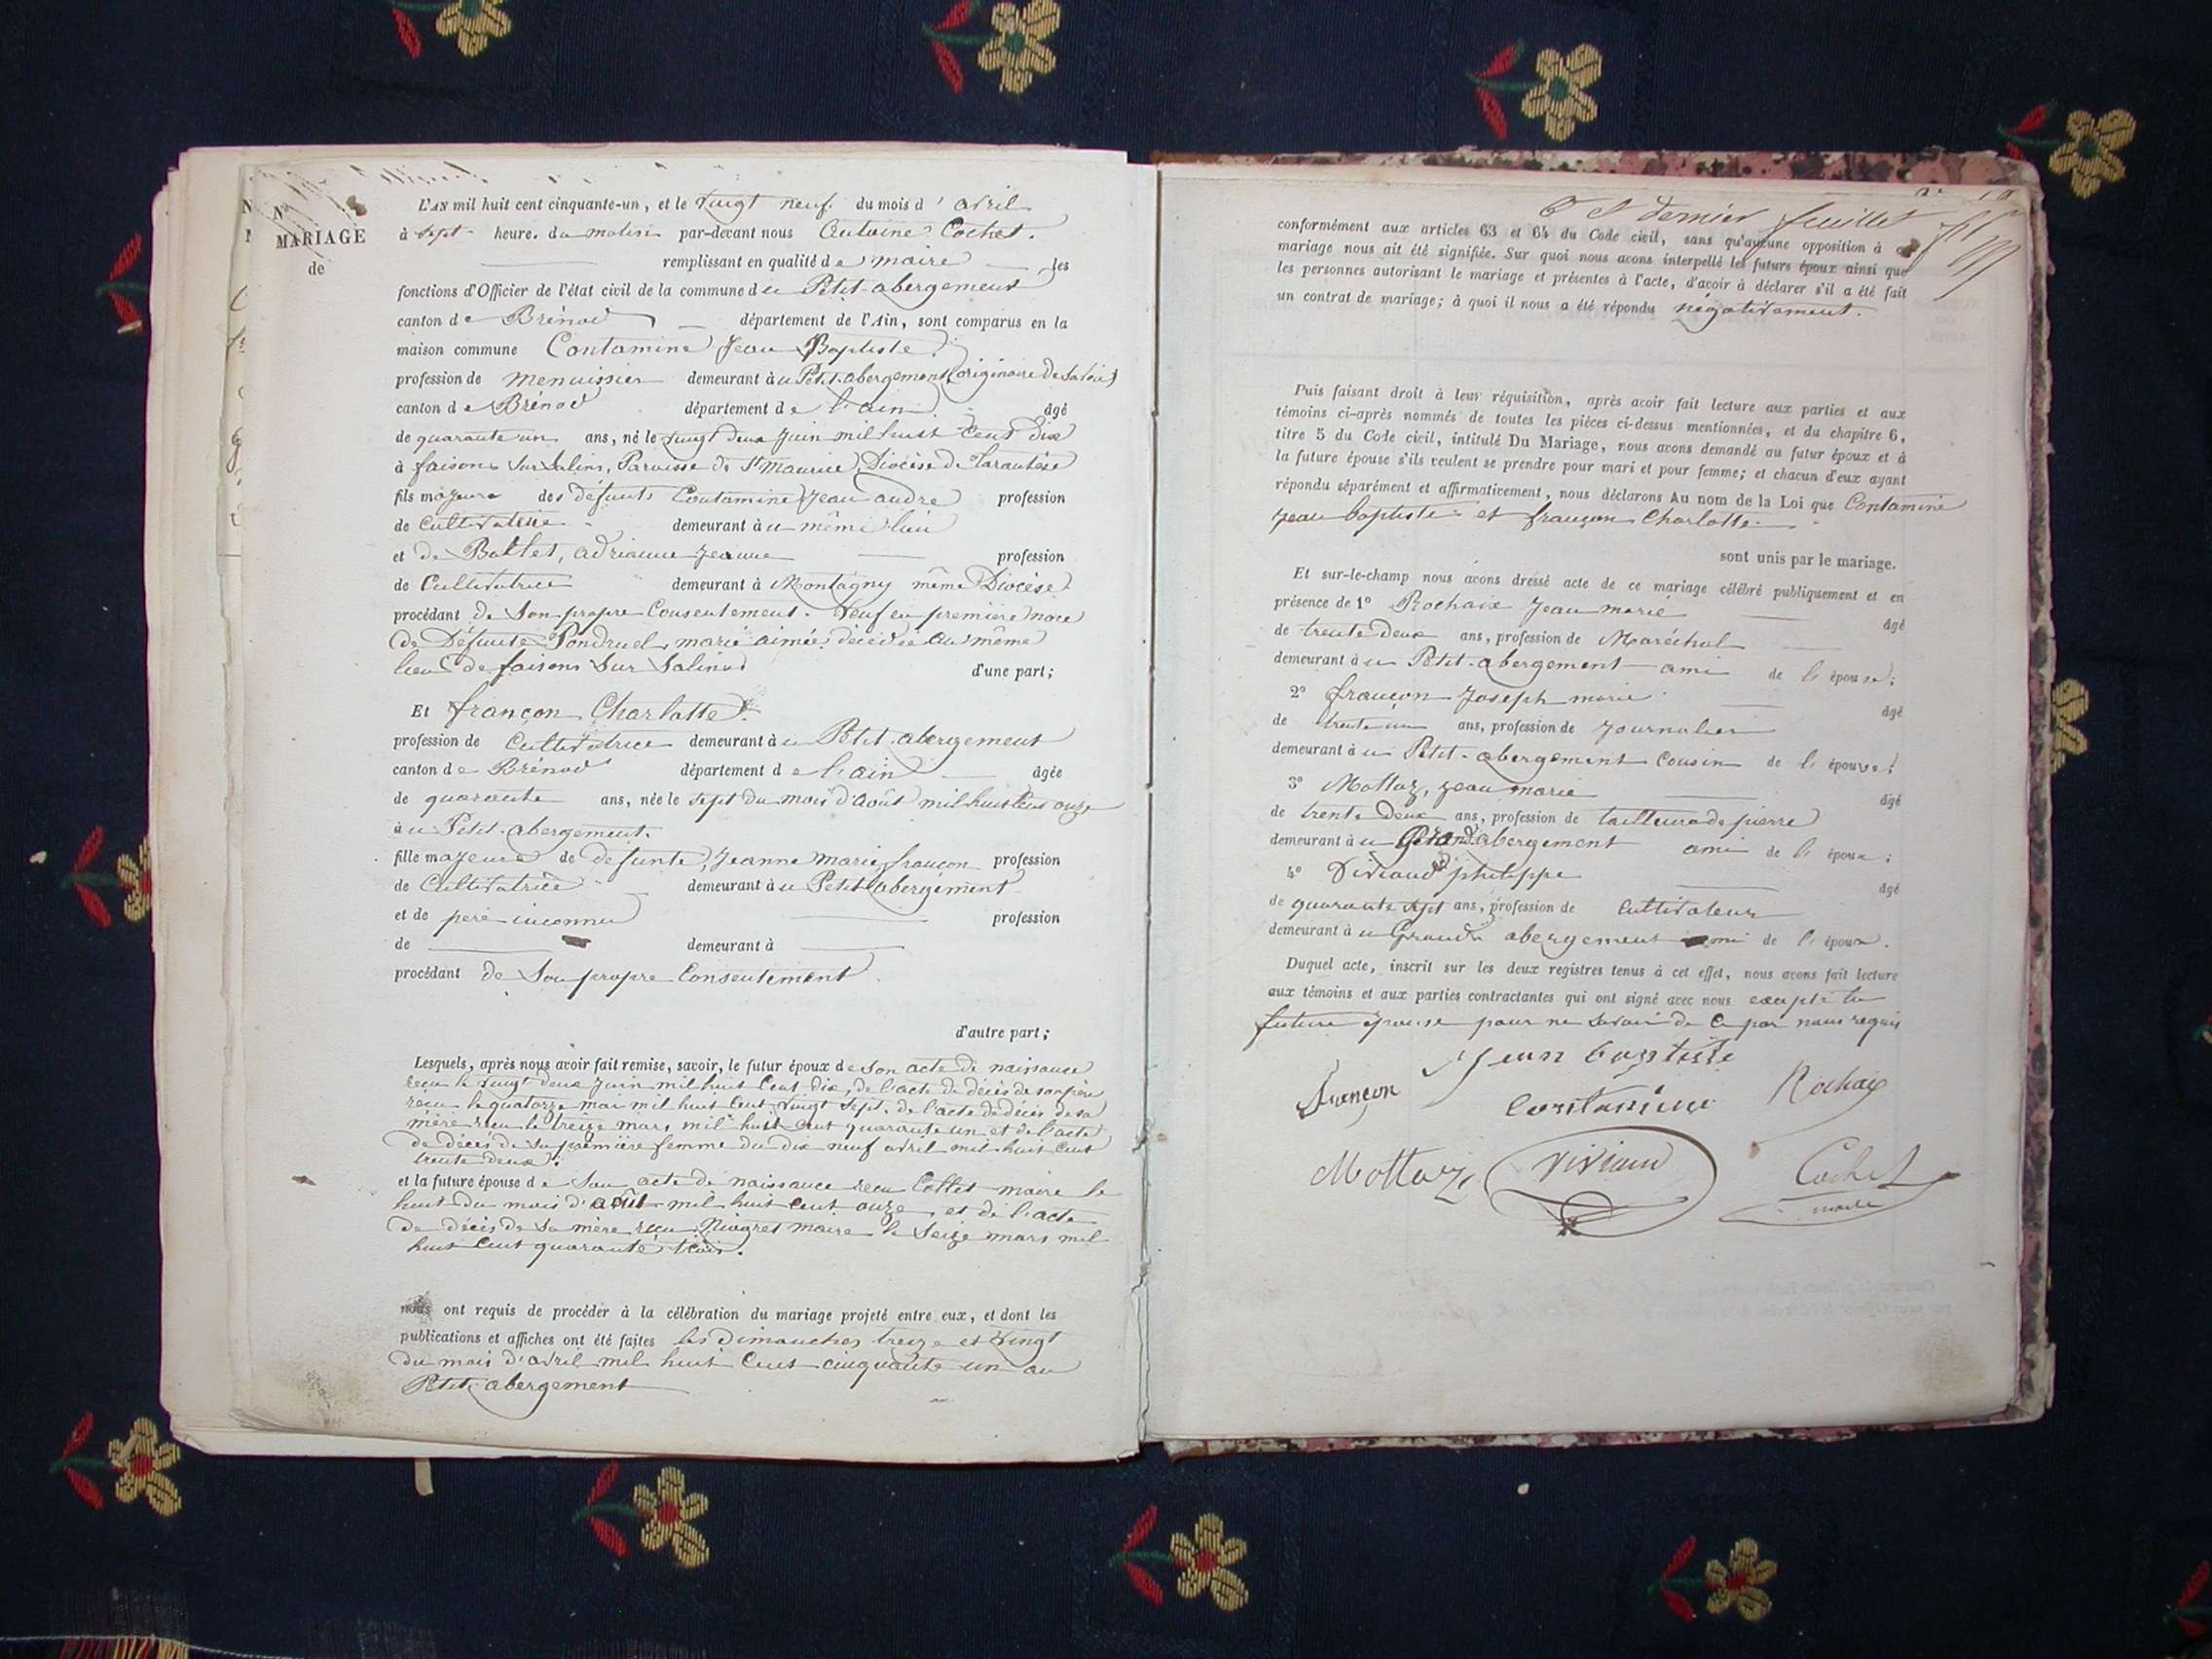 N°
MARIAGE
de
L'AN mil huit cent cinquante-un, et le vingt neuf du mois d'avril
à sept heure. du matin par-devant nous Antoine Cochet.
remplissant en qualité de maire les
fonctions d'Officier de l'état civil de la commune du Petit-abergement
canton de Brénod département de l'Ain, sont comparus en la
maison commune Contamine Jean Baptiste.
profession de menuisier demeurant au Petit-abergement (originaire de Savoie)
canton de Brénod département de l'ain. âgé
de quarante un ans, né le vingt deux juin mil huit cent dix
à faisons sur Salins, Paroisse de St maurice, Diocèse de Tarantèse
fils majeure des défunts Contamine Jean andre profession
de Cultivateur demeurant au même lieu
et de adrianne jeanne profession
de Cultivatrice demeurant à Montagny même Diocèse
procédant de son propre Consentement. veuf en première noce
de Défunte Pondruel, marie aimée, décédée au même
lieu de faisons sur Salins d'une part;
Et françon Charlotte.
profession de Cultivatrice demeurant au Petit-abergement
canton de Brénod département de l'ain âgée
de quarante ans, née le sept du mois d'août mil huit cent onze
au Petit-abergement.
fille majeure de defunte, Jeanne marie françon profession
de Cultivatrice demeurant au Petit abergement
et de père inconnu profession
de demeurant à
procédant de son propre Consentement
d'autre part;
Lesquels, après nous avoir fait remise, savoir, le futur époux de son acte de naissance
reçu le vingt deux juin mil huit cent dix, de l'acte de décès de son père
reçu le quatorze mai mil huit cent vingt sept. de l'acte de décès de sa
mère reçu le treize mars mil huit cent quarante un et de l'acte
de décès de sa première femme du dix neuf avril mil huit cent
trente deux.
et la future épouse de son acte de naissance reçu Collet maire le
huit du mois d'août mil huit cent onze, et de l'acte
de décès de sa mère reçu Niogret maire le seize mars mil
huit cent quarante trois.
nous ont requis de procéder à la célébration du mariage projeté entre eux, et dont les
publications et affiches ont été faites les dimanches treize et vingt
du mois d'avril mil huit cent cinquante un au
Petit abergement
6 et dernier feuillet
conformément aux articles 63 et 64 du Code civil, sans qu'aucune opposition à ce
mariage nous ait été signifiée. Sur quoi nous avons interpellé les futurs époux ainsi que
les personnes autorisant le mariage et présentes à l'acte, d'avoir à déclarer s'il a été fait
un contrat de mariage; à quoi il nous a été répondu négativement.
Puis faisant droit à leur réquisition, après avoir fait lecture aux parties et aux
témoins ci-après nommés de toutes les pièces ci-dessus mentionnées, et du chapitre 6,
titre 5 du Code civil, intitulé Du Mariage, nous avons demandé au futur époux et à
la future épouse s'ils veulent se prendre pour mari et pour femme; et chacun d'eux ayant
répondu séparément et affirmativement, nous déclarons Au nom de la Loi que Contamine
jean baptiste et françon Charlotte
sont unis par le mariage.
Et sur-le-champ nous avons dressé acte de ce mariage célébré publiquement et en
présence de 1° Rochaix Jean marie âgé
de trente deux ans, profession de Maréchal
demeurant au Petit-abergement ami de l'épouse;
2° françon Joseph marie âgé
de trente un ans, profession de journalier
demeurant au Petit-abergement Cousin de l'épouse;
3° Mottaz, jean marie âgé
de trente deux ans, profession de tailleur de pierre
demeurant au Grand abergement ami de l'époux;
4° Viviand philippe âgé
de quarante sept ans, profession de Cultivateur
demeurant au Grand abergement ami de l'époux.
Duquel acte, inscrit sur les deux registres tenus à cet effet, nous avons fait lecture
aux témoins et aux parties contractantes qui ont signé avec nous excepté la
future épouse pour ne savoir de ce par nous requis
Françon Jean baptiste Rochaix
Contamine
Mottaz Viviand Cochet
maire